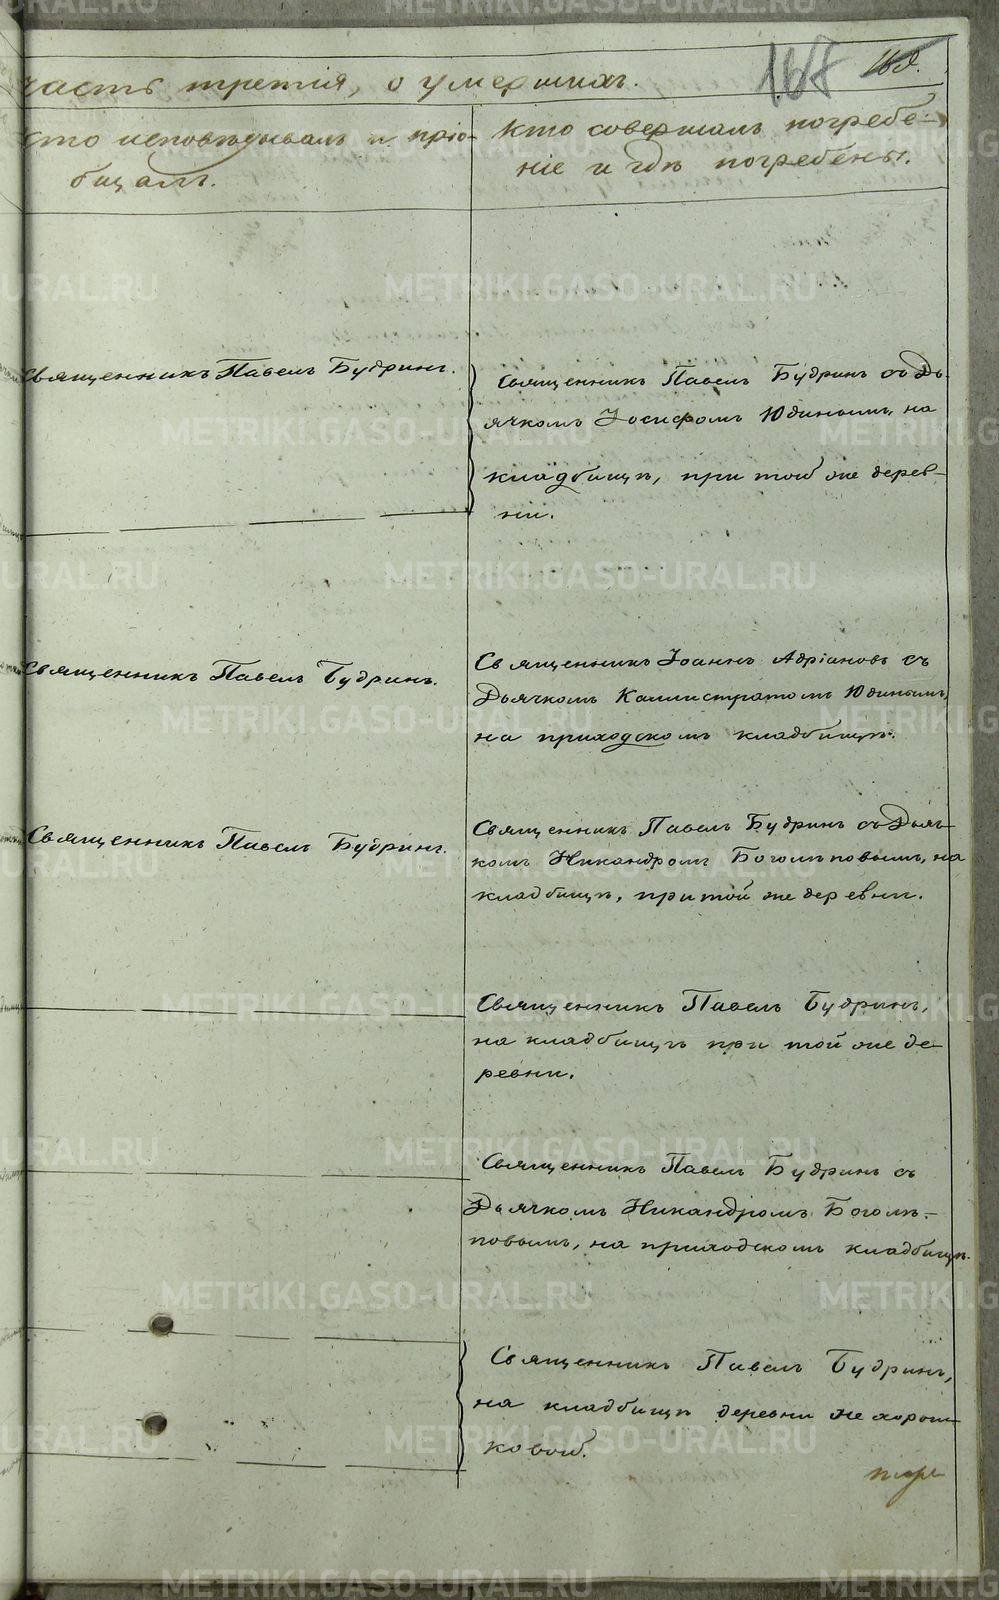 168
169.
часть третія, о умершихъ.
кто исповѣдывалъ и пріо-
бщалъ.
Кто совершалъ погребе-
ніе и гдѣ погребены.
Священникъ Павелъ Будринъ.
Священникъ Павелъ Будринъ съ Дь-
ячкомъ Іосифомъ Юдинымъ, на
кладбищѣ, при той же дерев-
ни.
Священникъ Павелъ Будринъ.
Священникъ Іоаннъ Адріановъ съ
Дьячкомъ Каллистратомъ Юдинымъ,
на приходскомъ кладбищѣ.
Священникъ Павелъ Будринъ.
Священникъ Павелъ Будринъ съ Дьяч-
комъ Никандромъ Боголѣповымъ, на
кладбищѣ, при той же деревни.
Священникъ Павелъ Будринъ,
на кладбищѣ при той же де-
ревни.
Священникъ Павелъ Будринъ съ
Дьячкомъ Никандромъ Боголѣ-
повымъ, на приходскомъ кладбищѣ.
Священникъ Павелъ Будринъ,
на кладбищѣ деревни Нехорош-
ковой.
METRIKI.GASO-URAL.RU